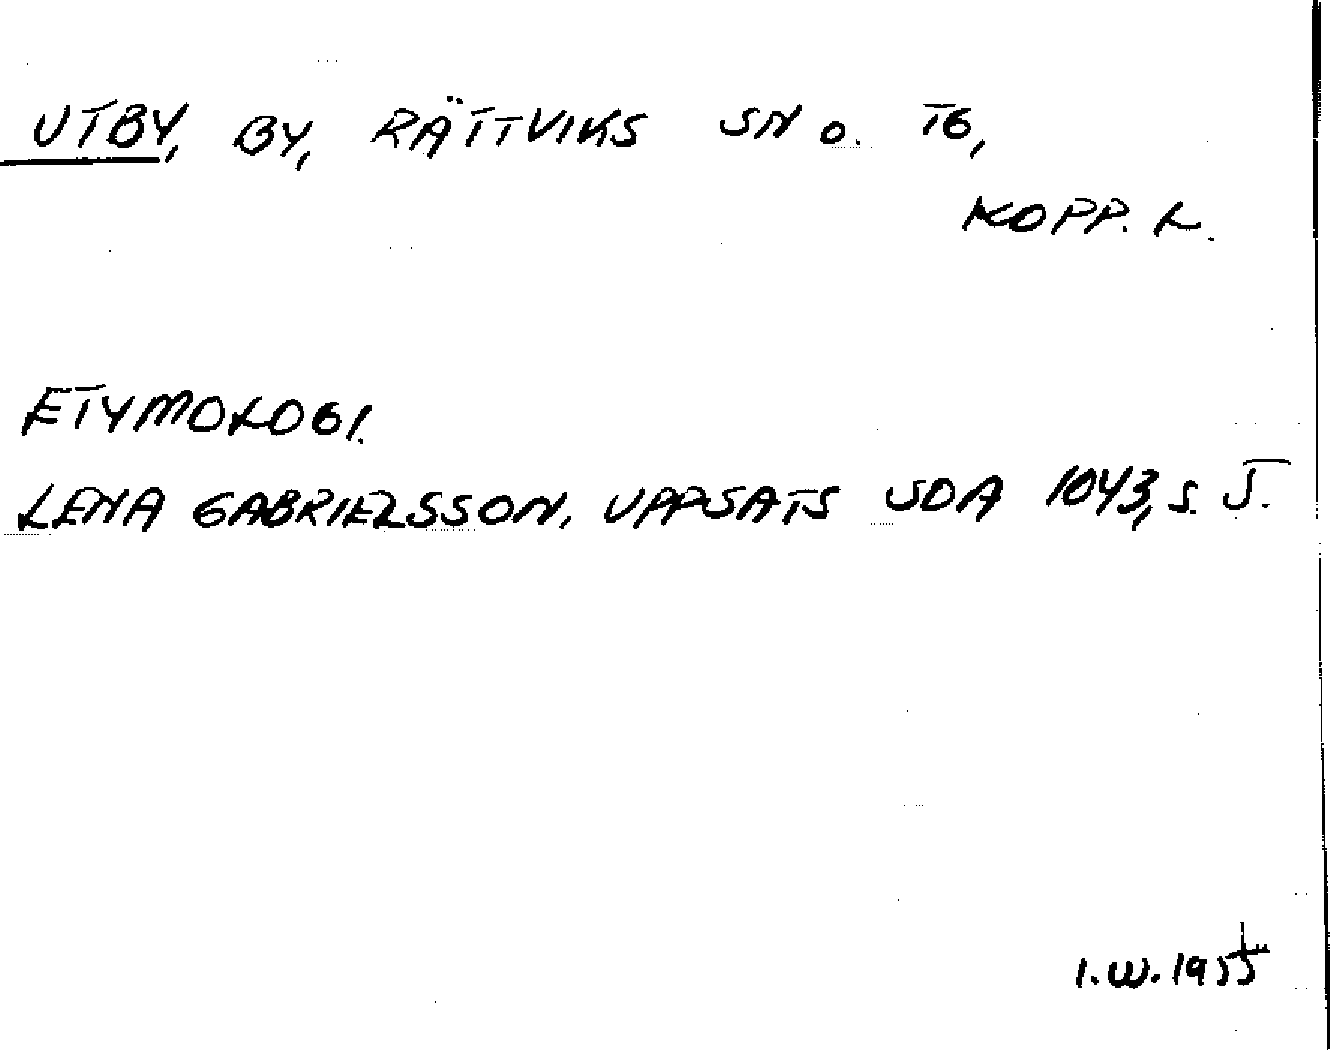 UTBY, BY, RÄTTVIKS SN O. TG,
KOPP. L.
ETYMOLOGI.
LENA GABRIELSSON, UPPSATS SDA 1043, S. 5.
I.W. 1955